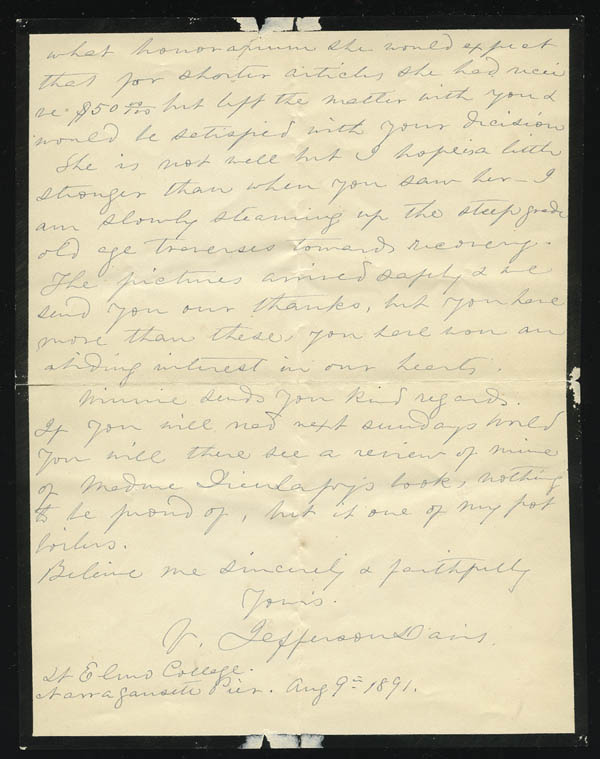 what honorarium she would expect
that for shorter articles she had recei
ve $50 00/100 but left the matter with you &
would be satisfied with your decision
She is not well but I hope is a little
stronger than when you saw her – I
am slowly steaming up the steep grade
old age traverses towards recovery.
The pictures arrived safely & we
send you our thanks, but you have
more than these, you have won an
abiding interest in our hearts.
Winnie sends you kind regards.
If you will read next sundays World
you will there see a review of mine
of Madme Dieulafoy's book, nothing
to be proud of, but it one of my pot
boilers.
Believe me sincerely & faithfully
Yours.
V. Jefferson Davis.
St Elmo College.
Narragansett Pier. Aug 9th 1891.